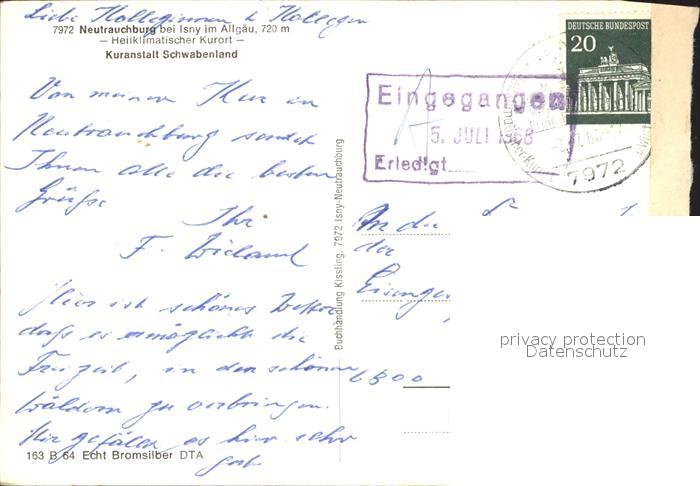 Liebe Kolleginnen & Kollegen
7972 Neutrauchburg bei Isny im Allgäu, 720 m
— Heilklimatischer Kurort —
Kuranstalt Schwabenland
Von meiner Kur in
Neutrauchburg sendet
Ihnen alle die besten
Grüße
Ihr
F. Wieland
Hier ist schönes Wetter
daß es ermöglicht die
Freizeit, in den schönen
Wäldern zu verbringen.
Mir gefällt es hier sehr
gut
163 B 64 Echt Bromsilber DTA
Buchhandlung Kissling, 7972 Isny-Neutrauchburg
DEUTSCHE BUNDESPOST
20
Eingegangen
5. JULI 1968
Erledigt
7972
An die
der
privacy protection
Datenschutz